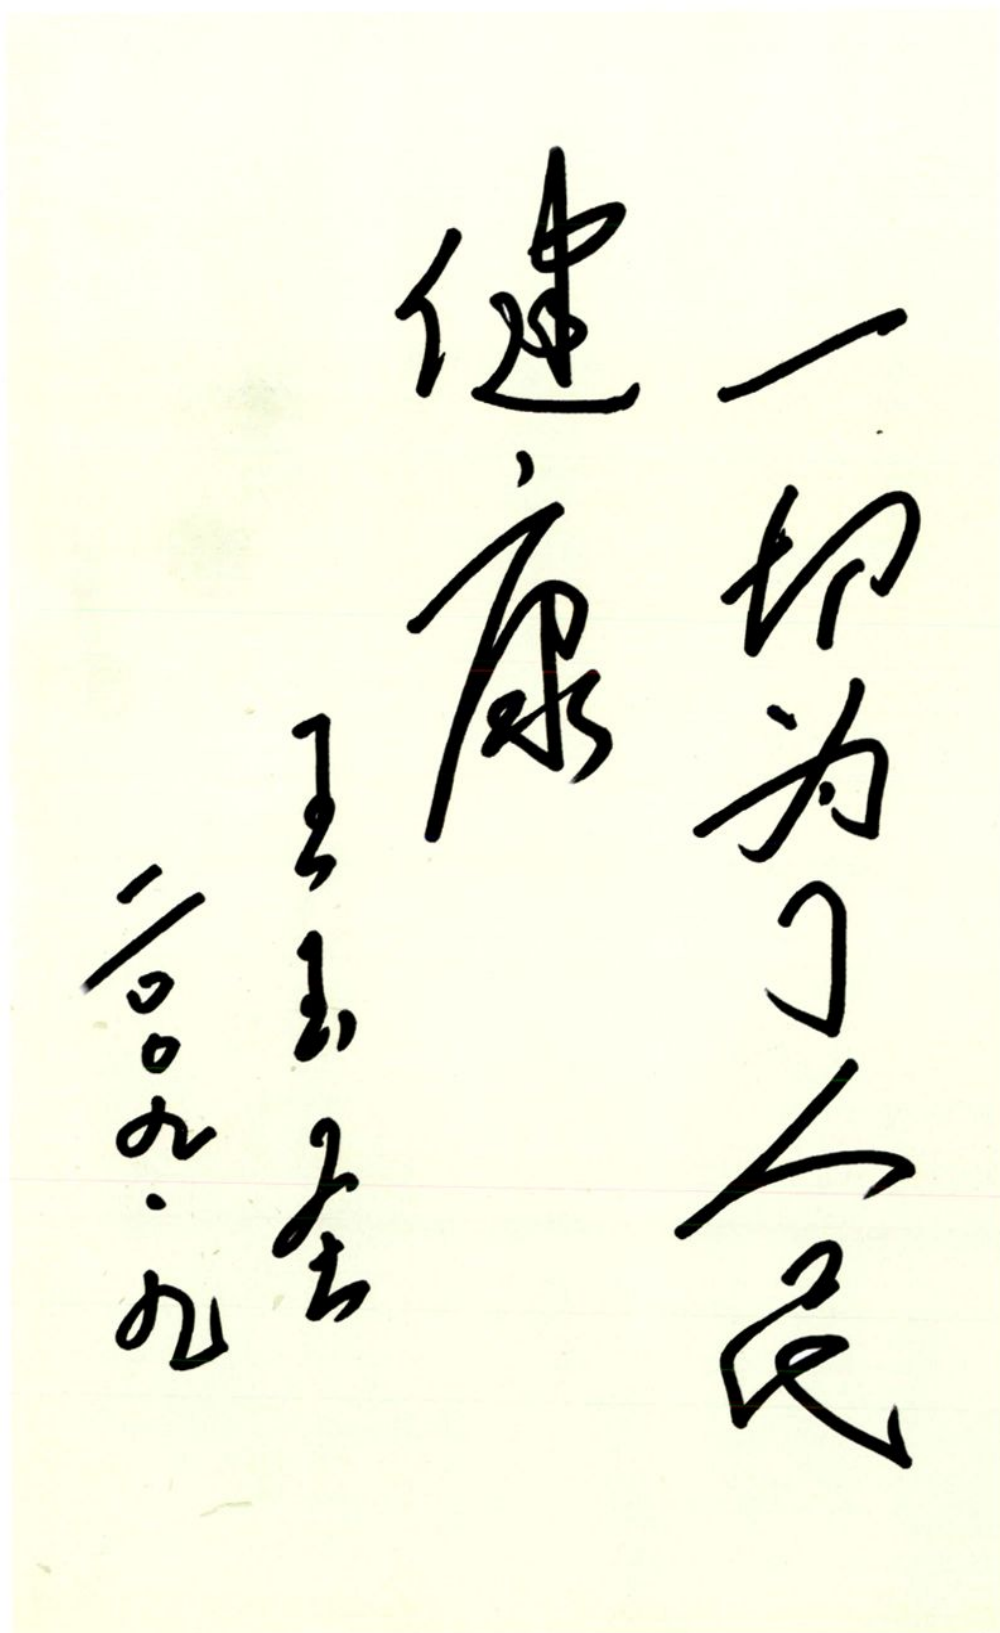 一切为了人民
健康
王玉
二〇〇九.九